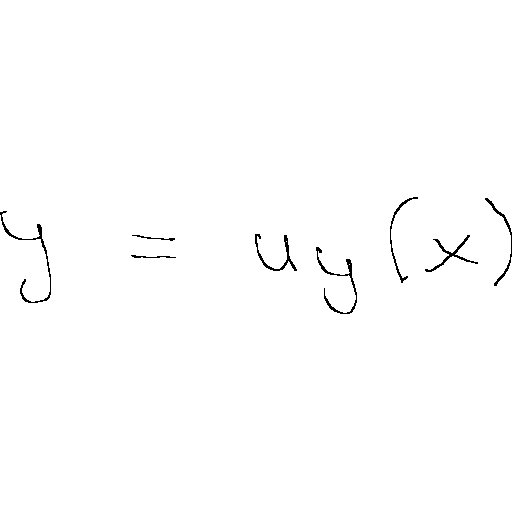 y = u_y(x)